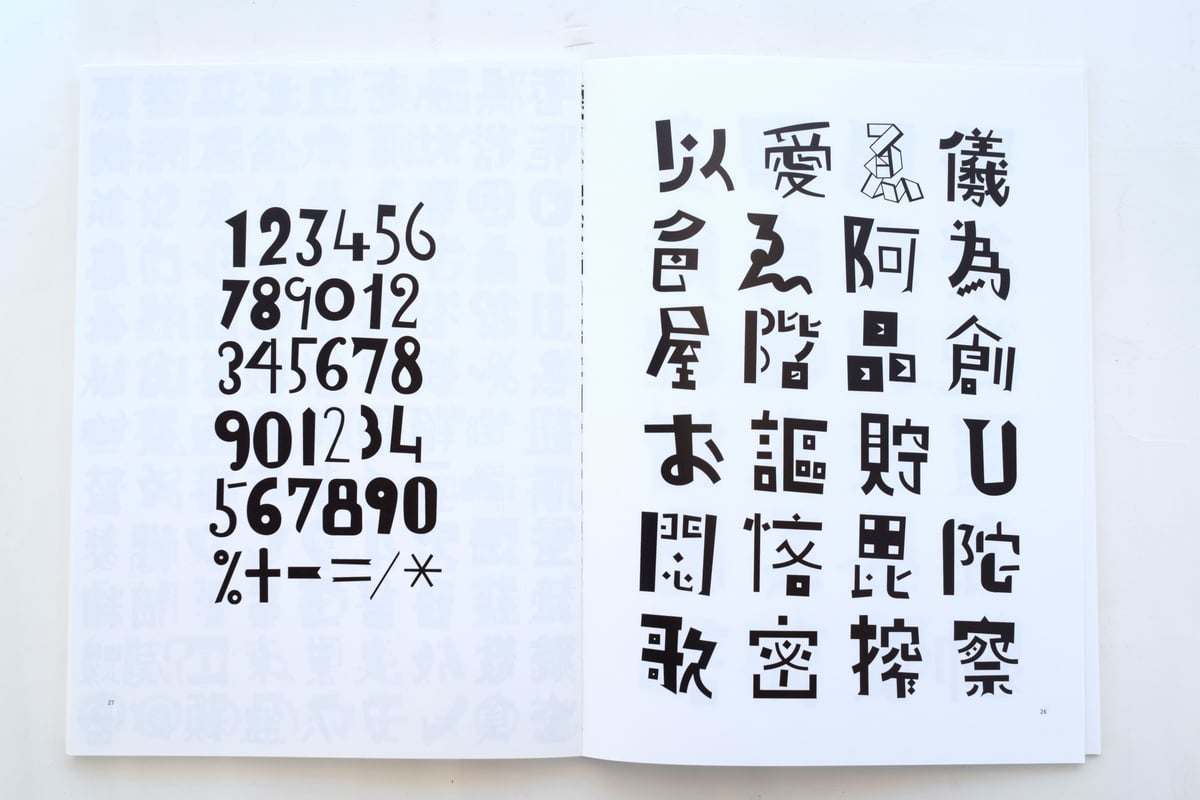 以 愛 儀
色 ゑ 阿 為
屋 階 品 創
お 謳 貯 U
悶 悋 毘 陀
歌 密 搾 察
26
123456
789012
345678
901234
567890
%+-=/*
27